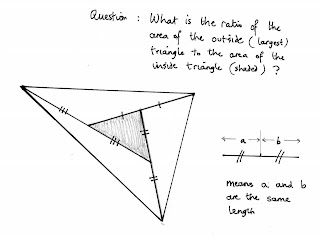 Question : What is the ratio of the
area of the outside (largest)
triangle to the area of the
inside triangle (shaded) ?
a b
means a and b
are the same
length